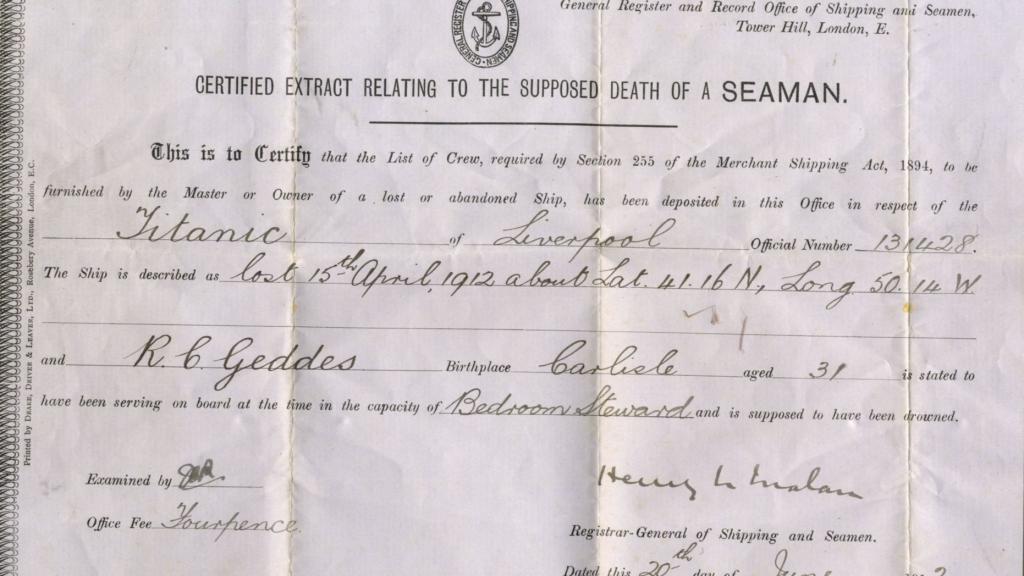 GENERAL REGISTER SHIPPING AND SEAMEN
General Register and Record Office of Shipping and Seamen,
Tower Hill, London, E.
CERTIFIED EXTRACT RELATING TO THE SUPPOSED DEATH OF A SEAMAN.
This is to Certify that the List of Crew, required by Section 255 of the Merchant Shipping Act, 1894, to be
furnished by the Master or Owner of a lost or abandoned Ship, has been deposited in this Office in respect of the
Titanic of Liverpool Official Number 131428.
The Ship is described as lost 15th April, 1912 about Lat. 41.16 N, Long 50.14 W.
and R. C Geddes Birthplace Carlisle aged 31 is stated to
have been serving on board at the time in the capacity of Bedroom Steward and is supposed to have been drowned.
Examined by
Henry N Malan
Office Fee Fourpence
Registrar-General of Shipping and Seamen.
Dated this 20th day of June
Printed by Drake, Driver & Leaver, Ltd., Rosebery Avenue, London, E.C.